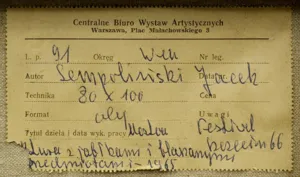 Centralne Biuro Wystaw Artystycznych
Warszawa, Plac Małachowskiego 3
L. p. 91 Okręg W-wa Nr leg.
Autor Sempoliński Jacek Data
Technika 80 x 100
Format olej Uwagi
Tytuł dzieła i data wyk. pracy Martwa Festiwal
natura z jabłkami i białymi Szczecin 66
przedmiotami - 1965